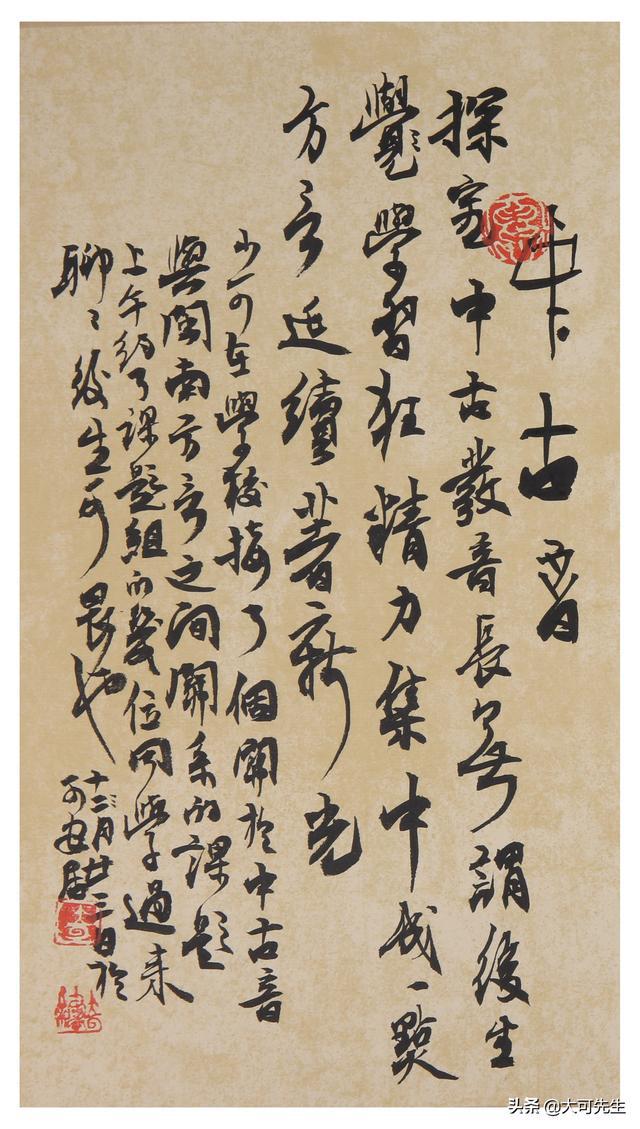 中古音
探中古發音長謂後生
覺學習狂精力集中成一點
方言延續著新光
小可在學校接了個關於中古音
與閩南方言之間關系的課題
上午約了課題組的幾位同學過來
聊〻後生可畏也
十二月廿三日於
可居
头条 @大可先生